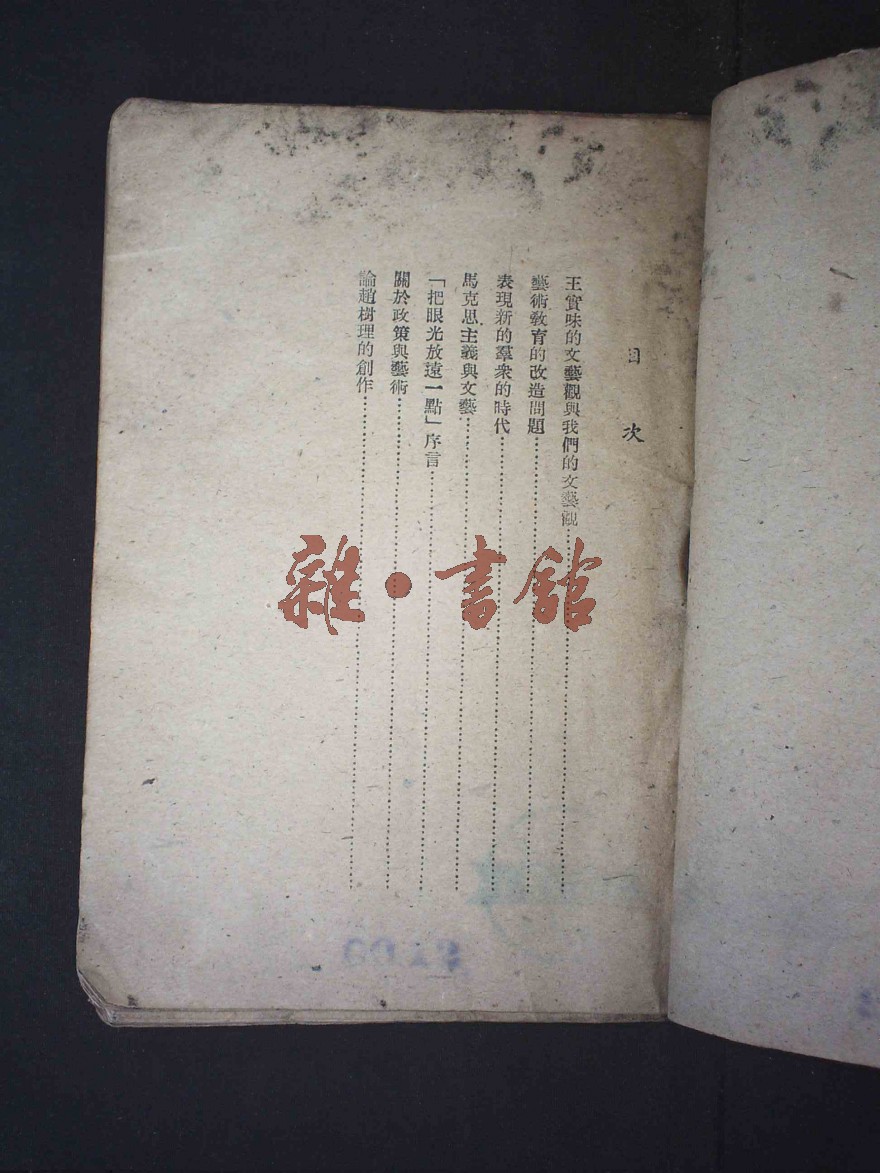 目次
王實味的文藝觀與我們的文藝觀
藝術教育的改造問題
表現新的羣衆的時代
馬克思主義與文藝
「把眼光放遠一點」序言
關於政策與藝術
論趙樹理的創作
雜·書館